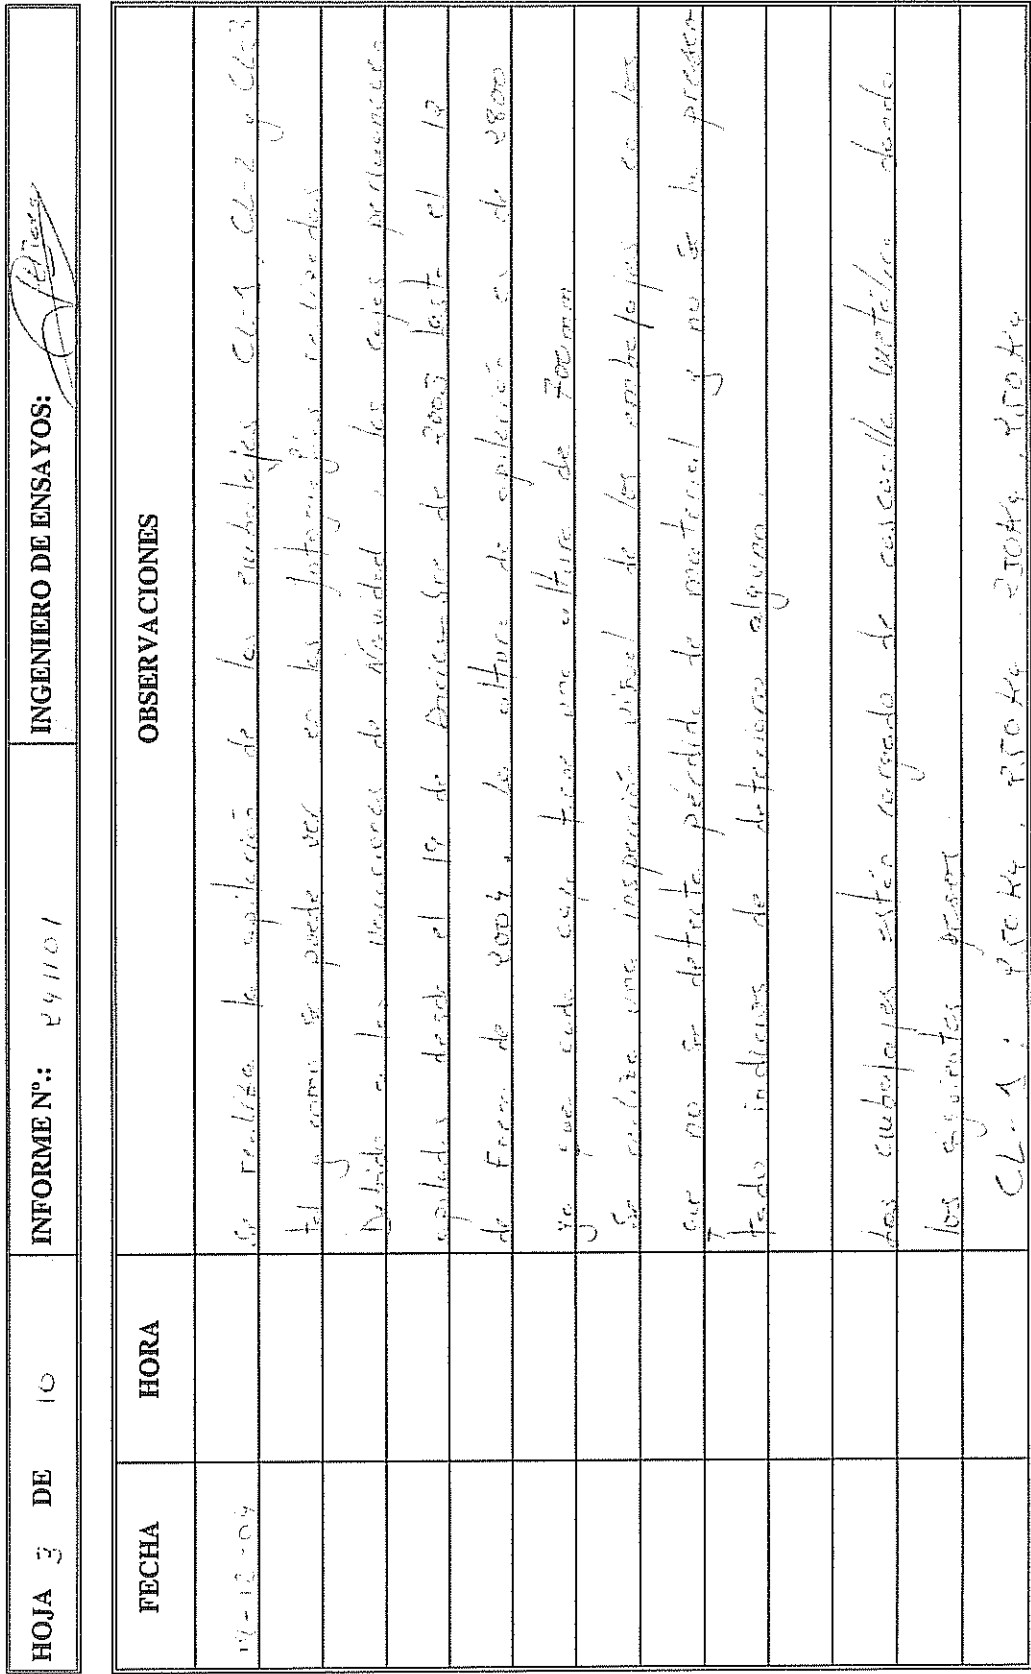 HOJA 3 DE 10 INFORME Nº.: 241101 INGENIERO DE ENSAYOS:
FECHA HORA OBSERVACIONES
19-12-04 Se realiza la apilación de los embalajes CL-1, CL-2 y CL-3
tal y como se puede ver en las fotografías realizadas
Debido a las vacaciones de Navidad, las cajas permanecen
apiladas desde el 19 de Diciembre de 2003 hasta el 12
de Enero de 2004. La altura de apilación es de 2800
ya que cada caja tiene una altura de 700mm
Se realiza una inspección visual de los embalajes en los
que no se detecta pérdida de material y no se ha presen
tado indicios de deterioro alguno.
Los embalajes están cargado de cascarilla metálica dando
los siguientes pesos:
CL-1: 250 Kg, 250 Kg, 250Kg, 250Kg